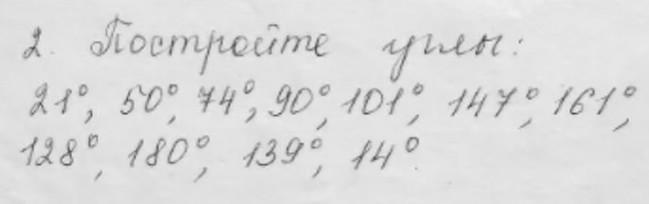 2. Постройте углы:
21°, 50°, 74°, 90°, 101°, 147°, 161°,
128°, 180°, 139°, 14°.